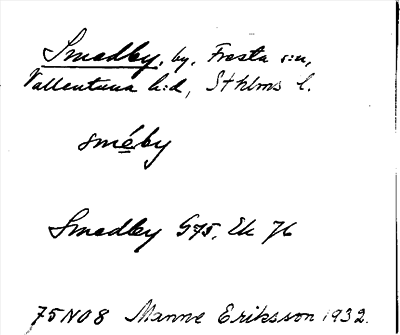 Smedby, by, Fresta s:n,
Vallentuna h:d, Sthlms l.
sméby
Smedby G75, Ek 76
75N08 Manne Eriksson 1932.